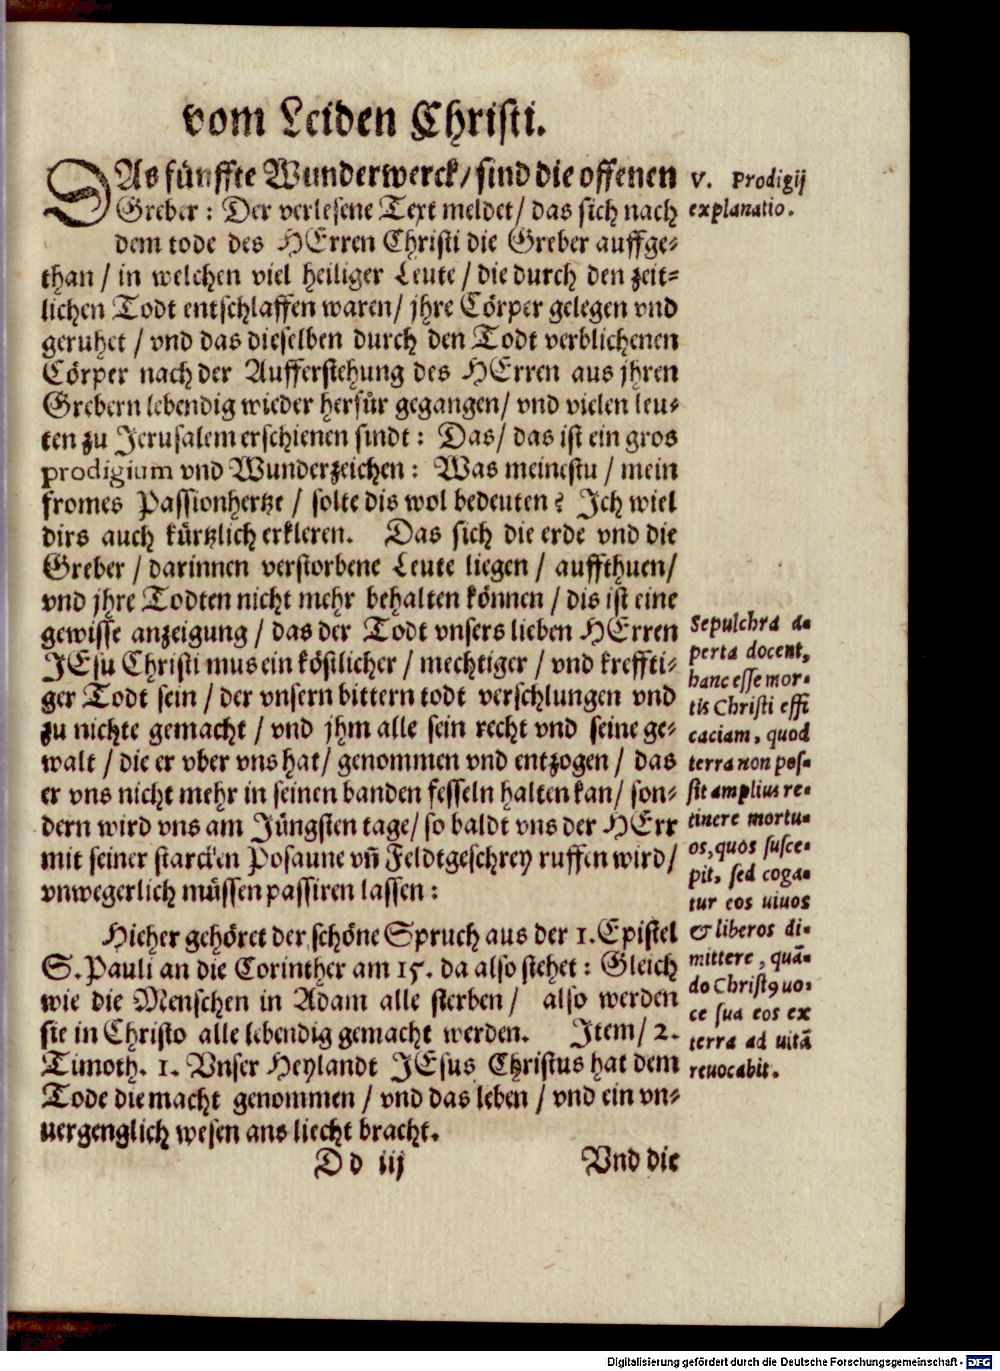 vom Leiden Christi.
DAs fünffte Wunderwerck/ sind die offenen
Greber : Der verlesene Text meldet/ das sich nach
dem tode des HErren Christi die Greber auffge-
than / in welchen viel heiliger Leute / die durch den zeit-
lichen Todt entschlaffen waren/ jhre Cörper gelegen vnd
geruhet / vnd das dieselben durch den Todt verblichenen
Cörper nach der Aufferstehung des HErren aus jhren
Grebern lebendig wieder herfür gegangen/ vnd vielen leu-
ten zu Jerusalem erschienen sindt : Das/ das ist ein gros
prodigium vnd Wunderzeichen : Was meinestu / mein
fromes Passionhertze / solte dis wol bedeuten? Ich wiel
dirs auch kürtzlich erkleren. Das sich die erde vnd die
Greber / darinnen verstorbene Leute liegen / auffthuen/
vnd jhre Todten nicht mehr behalten können / dis ist eine
gewisse anzeigung / das der Todt vnsers lieben HErren
JEsu Christi mus ein köstlicher / mechtiger / vnd kreffti-
ger Todt sein / der vnsern bittern todt verschlungen vnd
zu nichte gemacht / vnd jhm alle sein recht vnd seine ge-
walt / die er vber vns hat/ genommen vnd entzogen / das
er vns nicht mehr in seinen banden fesseln halten kan/ son-
dern wird vns am Jüngsten tage/ so baldt vns der HErr
mit seiner starcken Posaune vn̄ Feldtgeschrey ruffen wird/
vnwegerlich müssen passiren lassen :
Hieher gehöret der schöne Spruch aus der 1. Epistel
S. Pauli an die Corinther am 15. da also stehet : Gleich
wie die Menschen in Adam alle sterben / also werden
sie in Christo alle lebendig gemacht werden. Item/ 2.
Timoth. 1. Vnser Heylandt JEsus Christus hat dem
Tode die macht genommen / vnd das leben / vnd ein vn-
uergenglich wesen ans liecht bracht.
D d iij
Vnd die
V. Prodigij
explanatio.
Sepulchra a-
perta docent,
hanc esse mor-
tis Christi effi
caciam, quod
terra non pos-
sit amplius re-
tinere mortu-
os, quos susce-
pit, sed coga-
tur eos uiuos
& liberos di-
mittere, quā-
do Christꝰ uo-
ce sua eos ex
terra ad uitā
reuocabit.
Digitalisierung gefördert durch die Deutsche Forschungsgemeinschaft - DFG